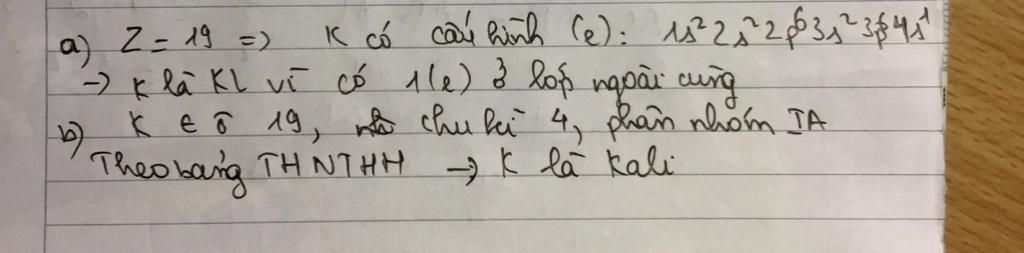 a) Z = 19 => K có cấu hình (e): 1s² 2s² 2p⁶ 3s² 3p⁶ 4s¹
-> K là KL vì có 1(e) ở lớp ngoài cùng
b) K ∈ ô 19, chu kì 4, phân nhóm IA
Theo bảng THNTHH -> K là Kali